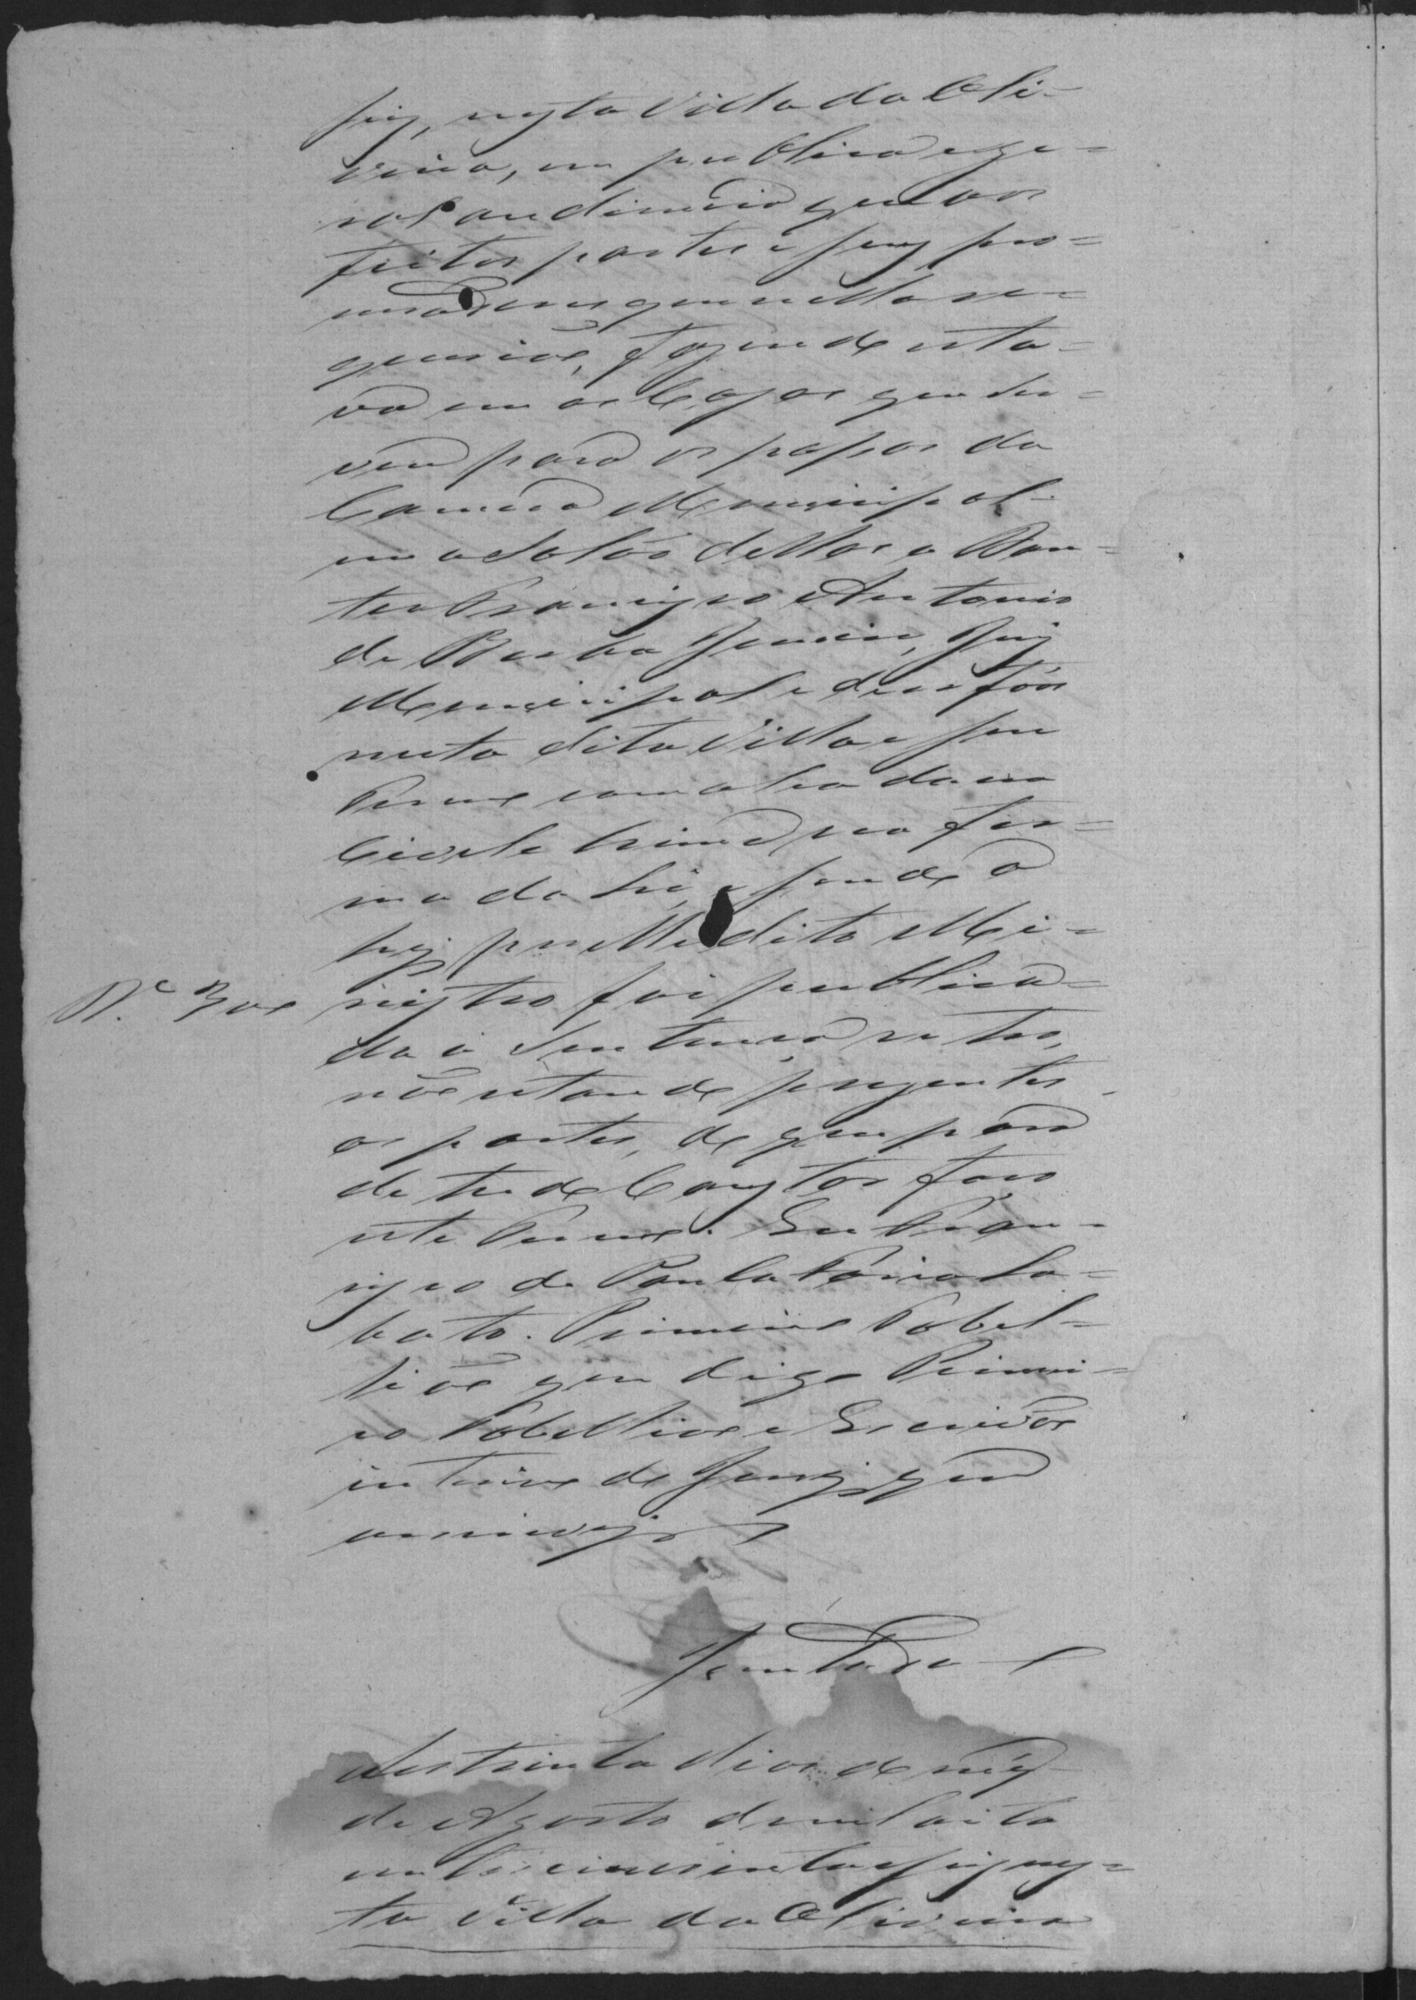 seis, nesta Villa da Oli-
veira, em publica e ge-
ral audiencia que aos
feitos partes e seus pro-
curadores que nella re-
querião, fazendo esta-
va em as Cazas que ser-
vem para os passos da
Camera Municipal
em a Salla dellas o Dou-
tor Francisco Antonio
de Borba Junior, Juiz
Municipal e de orfãos
nesta dita Villa e seu
Termo com alçada no
Civel e Crime na for-
ma da Lei, e sendo a
hi pello dito Mi-
Pe 300
nistro foi publica-
da a Sentença retro,
não estando prezentes
as partes, do que para
de tudo Constar faço
este Termo. Eu Fran-
cisco de Paula Lo-
bato. Primeiro Tabel-
lião que digo Primei-
ro Tabellião e Escrivão
interino de Juiz, que
escrevi
Juntada
Aos trinta dias do mes
de Agosto de mil oito
centos cincoenta e seis nes-
ta Villa da Oliveira